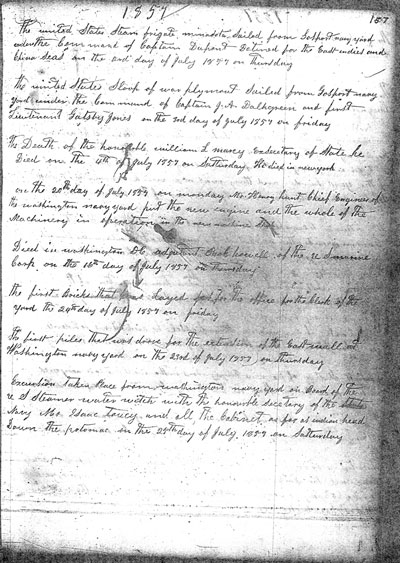 1857
157
The united States Steam frigate minnesota Sailed from Gosport navy yard
under the Command of Captain Dupont Bound for the East indies and
China Seas on the day of July 1857 on thursday
The united States Sloop of war plymont Sailed from Gosport navy
yard under the Command of Captain J. A. Dalhgreen and first
Lieutenant Catsby Jones on the 3rd day of July 1857 on friday
The Death of the honorable william L marcy Exsecretary of State he
Died on the 4th of July 1857 on Saturday. He died in newyork
on the 20th day of July 1857 on monday Mr Henry hunt Chief Engineer of
the washington navy yard put the new engine and the whole of the
Machinery in operation in the new machine
Died in washington DC adjutant of the u S marine
Corp. on the 16th day of July 1857 on thursday
the first Bricks that was layed for the office for the Clerk of the
yard the 24th day of July 1857 on friday
The first piles that was drove for the extension of the East wall at
Washington navy yard on the 23rd of July 1857 on thursday
Excursion taken place from washington navy yard on Board of the
u S Steamer water witch with the honorable Secetary of the
Navy Mr. Isaac toucey and all the Cabinet as far as indian head
Down the potomac in the 25th day of July. 1857 on Saturday